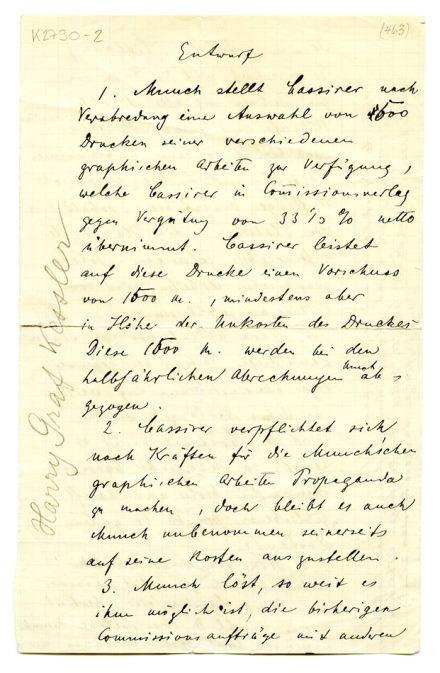 K2790-2
(463)
Entwurf
1. Munch stellt Cassirer nach
Verabredung eine Auswahl von 1500
Drucken seiner verschiedenen
graphischen Arbeiten zur Verfügung,
welche Cassirer in Com̄issionsverlag
gegen Vergütung von 33⅓ % netto
übernimmt. Cassirer leistet
auf diese Drucke einen Vorschuss
von 1500 M., mindestens aber
in Höhe der Unkosten des Druckes
Diese 1500 M. werden bei den
halbjährlichen Abrechnungen Munch ab-
gezogen.
2. Cassirer verpflichtet sich
nach Kräften für die Munch'schen
graphischen Arbeiten Propaganda
zu machen, doch bleibt es auch
Munch unbenommen seinerseits
auf seine Kosten auszustellen.
3. Munch löst, so weit es
ihm möglich ist, die bisherigen
Commissionsaufträge mit anderen
Harry Graf Kessler